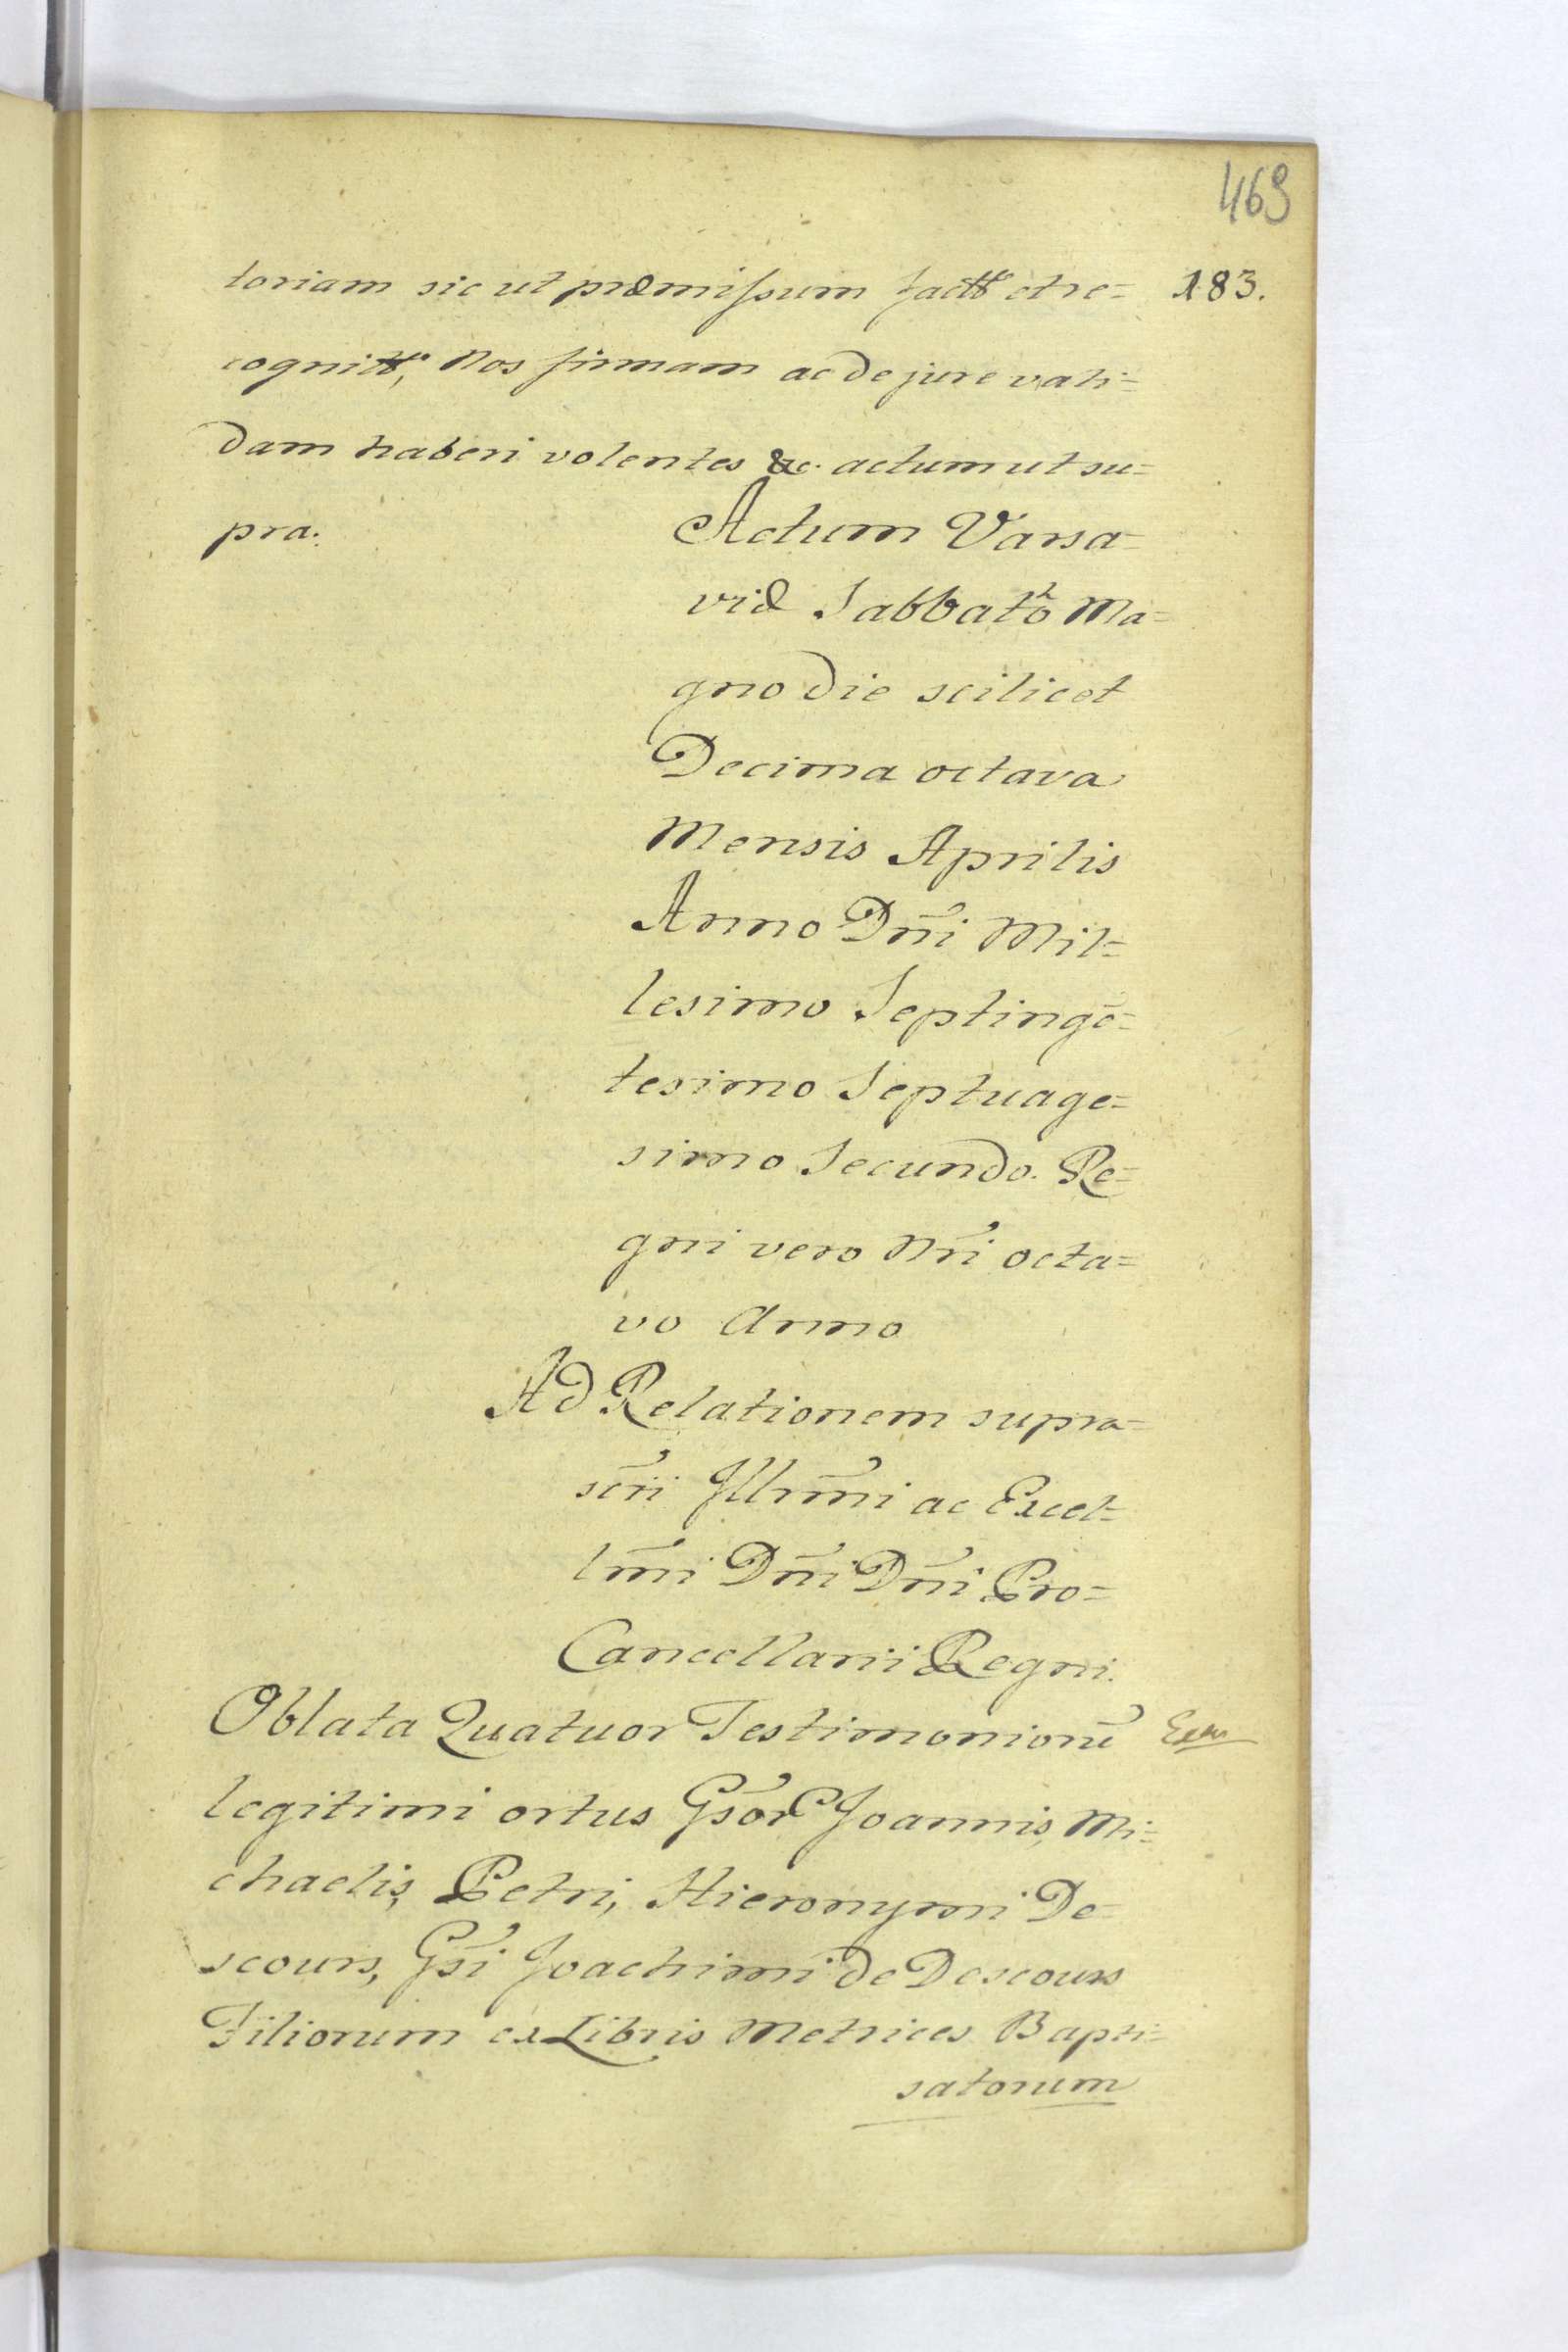 469
183.
toriam sic ut præmissum et re=
Nos firmam ac de jure vali=
dam haberi volentes &c. actum ut su=
pra.
Actum Varsa=
viæ Sabbatho Ma=
gno die scilicet
Decima octava
Mensis Aprilis
Anno Dn̄i Mil=
lesimo Septingē=
tesimo Septuage=
simo Secundo. Re=
gni vero Nr̄i octa=
vo Anno
Ad Relationem supra=
scr̄i Jllmn̄i ac Excel=
lmn̄i Dn̄i Dn̄i Pro=
Cancellarii Regni.
Oblata Quatuor Testimoniorū
legitimi ortus Gs̄or Joannis, Mi=
chaelis, Petri, Hieronymi De=
scours, Gs̄i Joachimi de Descours
Filiorum ex Libris Metrices Bapti=
satorum